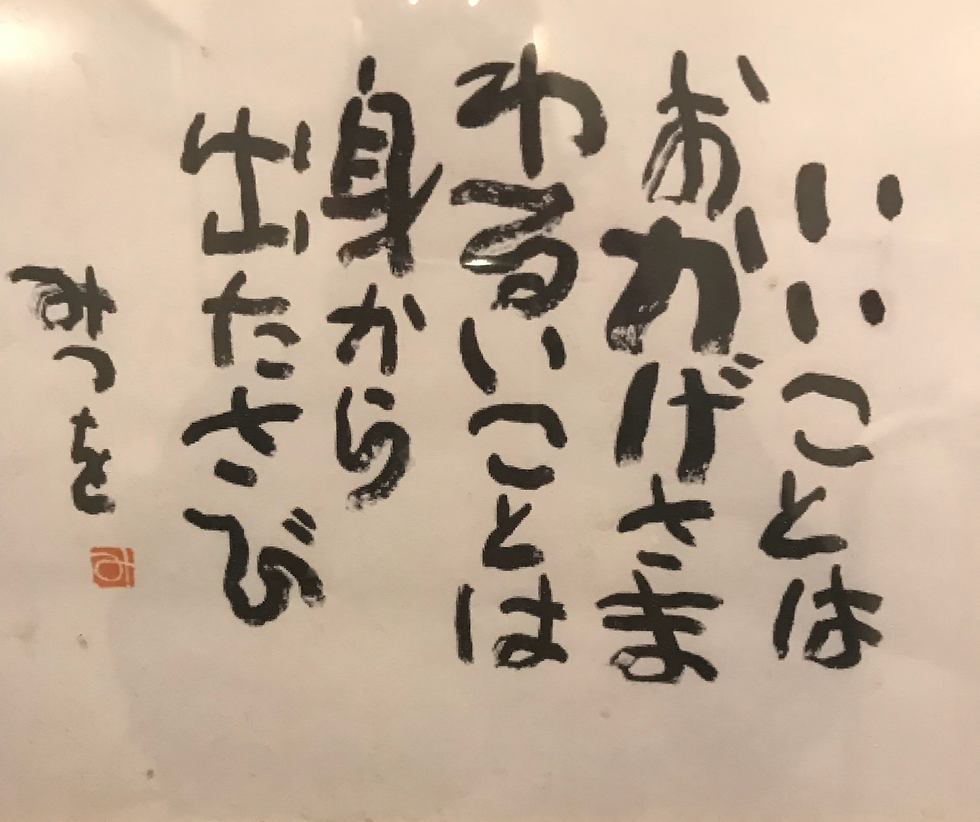 いいことは
おかげさま
わるいことは
身から
出たさび
みつを
み